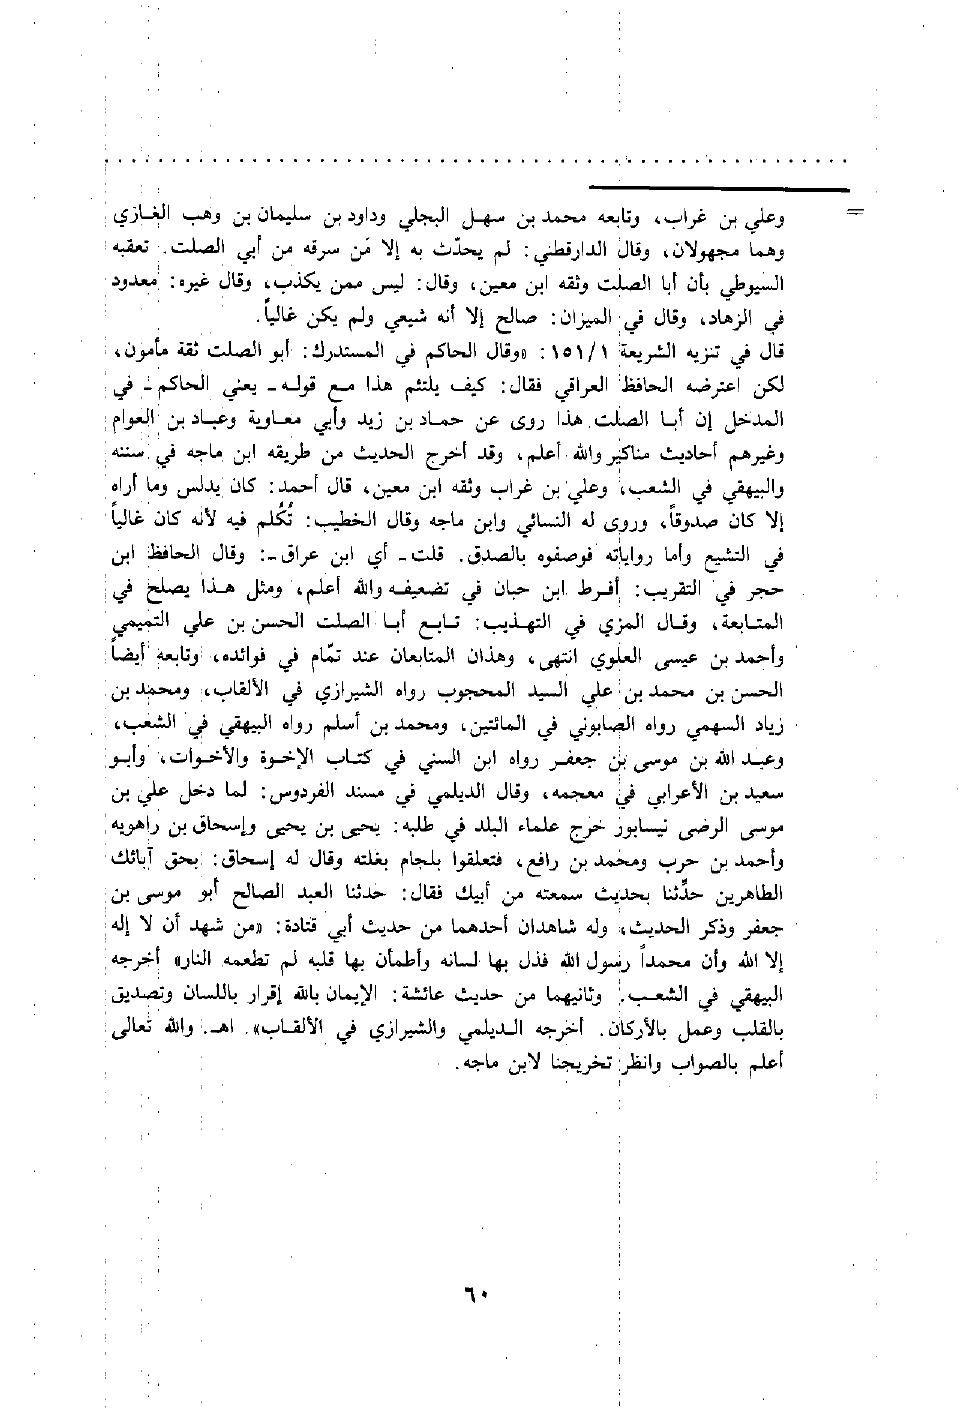 = وعلي بن غراب، وتابعه محمد بن سهل البجلي وداود بن سليمان بن وهب الغازي
وهما مجهولان، وقال الدارقطني: لم يحدّث به إلا مَن سرقه من أبي الصلت. تعقبه
السيوطي بأن أبا الصلت وثقه ابن معين، وقال: ليس ممن يكذب، وقال غيره: معدود
في الزهاد، وقال في الميزان: صالح إلا أنه شيعي ولم يكن غالياً.
قال في تنزيه الشريعة ١/١٥١: «وقال الحاكم في المستدرك: أبو الصلت ثقة مأمون،
لكن اعترضه الحافظ العراقي فقال: كيف يلتئم هذا مع قوله ـ يعني الحاكم ـ في
المدخل إن أبا الصلت هذا روى عن حماد بن زيد وأبي معاوية وعباد بن العوام
وغيرهم أحاديث مناكير والله أعلم، وقد أخرج الحديث من طريقه ابن ماجه في سننه
والبيهقي في الشعب، وعلي بن غراب وثقه ابن معين، قال أحمد: كان يدلس وما أراه
إلا كان صدوقاً، وروى له النسائي وابن ماجه وقال الخطيب: تُكُلم فيه لأنه كان غالياً
في التشيع وأما رواياته فوصفوه بالصدق. قلت ـ أي ابن عراق ـ: وقال الحافظ ابن
حجر في التقريب: أفرط ابن حبان في تضعيفه والله أعلم، ومثل هذا يصلح في
المتابعة، وقال المزي في التهذيب: تابع أبا الصلت الحسن بن علي التميمي
وأحمد بن عيسى العلوي انتهى، وهذان المتابعان عند تمّام في فوائده، وتابعه أيضاً
الحسن بن محمد بن علي السيد المحجوب رواه الشيرازي في الألقاب، ومحمد بن
زياد السهمي رواه الصابوني في المائتين، ومحمد بن أسلم رواه البيهقي في الشعب،
وعبد الله بن موسى بن جعفر رواه ابن السني في كتاب الإخوة والأخوات، وأبو
سعيد بن الأعرابي في معجمه، وقال الديلمي في مسند الفردوس: لما دخل علي بن
موسى الرضى نيسابور خرج علماء البلد في طلبه: يحيى بن يحيى وإسحاق بن راهويه
وأحمد بن حرب ومحمد بن رافع، فتعلقوا بلجام بغلته وقال له إسحاق: بحق آبائك
الطاهرين حدّثنا بحديث سمعته من أبيك فقال: حدثنا العبد الصالح أبو موسى بن
جعفر وذكر الحديث، وله شاهدان أحدهما من حديث أبي قتادة: «من شهد أن لا إله
إلا الله وأن محمداً رسول الله فذل بها لسانه وأطمأن بها قلبه لم تطعمه النار» أخرجه
البيهقي في الشعب. وثانيهما من حديث عائشة: الإيمان بالله إقرار باللسان وتصديق
بالقلب وعمل بالأركان. أخرجه الديلمي والشيرازي في الألقاب». اهـ. والله تعالى
أعلم بالصواب وانظر تخريجنا لابن ماجه.
٦٠